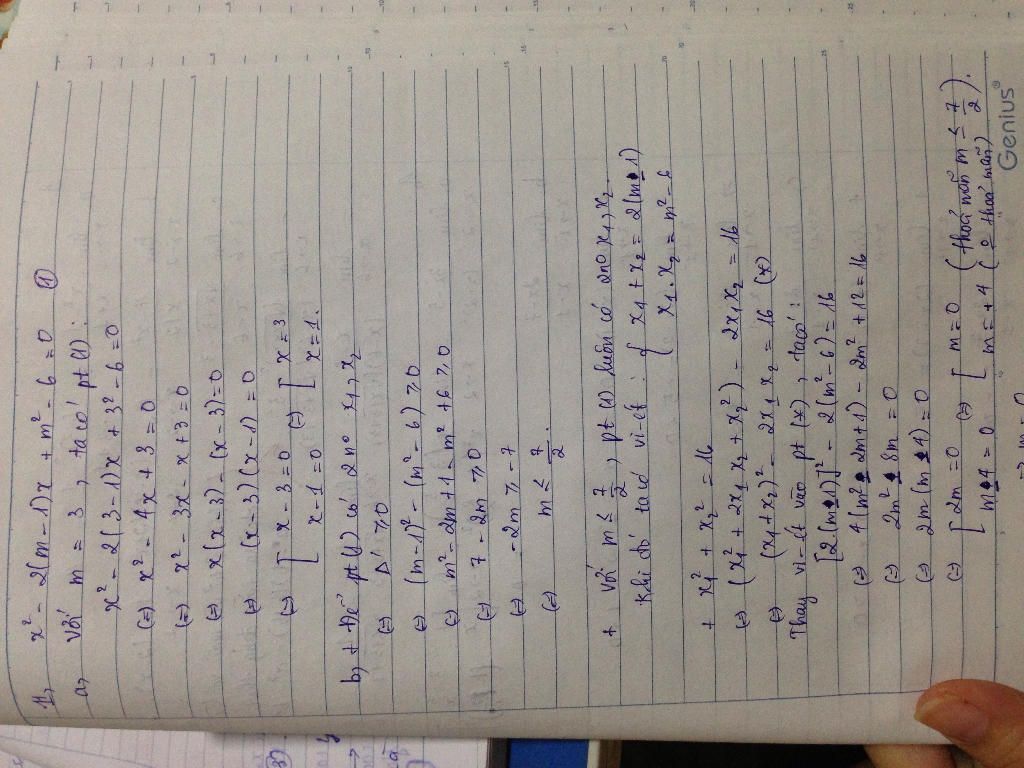 1, x² - 2(m-1)x + m² - 6 = 0 (1)
a, Với m = 3, ta có pt (1):
x² - 2(3-1)x + 3² - 6 = 0
(=) x² - 4x + 3 = 0
(=) x² - 3x - x + 3 = 0
(=) x(x-3) - (x-3) = 0
(=) (x-3)(x-1) = 0
(=) [ x-3=0 (=) [ x=3
x-1=0 x=1.
b, + Để pt (1) có 2 n⁰ x₁, x₂
(=) Δ' ⩾ 0
(=) (m-1)² - (m² - 6) ⩾ 0
(=) m² - 2m + 1 - m² + 6 ⩾ 0
(=) 7 - 2m ⩾ 0
(=) -2m ⩾ -7
(=) m ≤ 7/2.
+ Với m ≤ 7/2, pt (1) luôn có 2n⁰ x₁, x₂.
Khi đó ta có vi-ét: { x₁ + x₂ = 2(m-1)
x₁.x₂ = m² - 6
+ x₁² + x₂² = 16
(=) (x₁² + 2x₁x₂ + x₂²) - 2x₁x₂ = 16
(=) (x₁+x₂)² - 2x₁x₂ = 16 (*)
Thay vi-ét vào pt (*), ta có:
[2(m-1)]² - 2(m² - 6) = 16
(=) 4(m² - 2m + 1) - 2m² + 12 = 16
(=) 2m² - 8m = 0
(=) 2m(m-4) = 0
(=) [ 2m = 0 (=) [ m = 0 (thoả mãn m ≤ 7/2).
m-4 = 0 m = +4 (0 thoả mãn)
Genius®